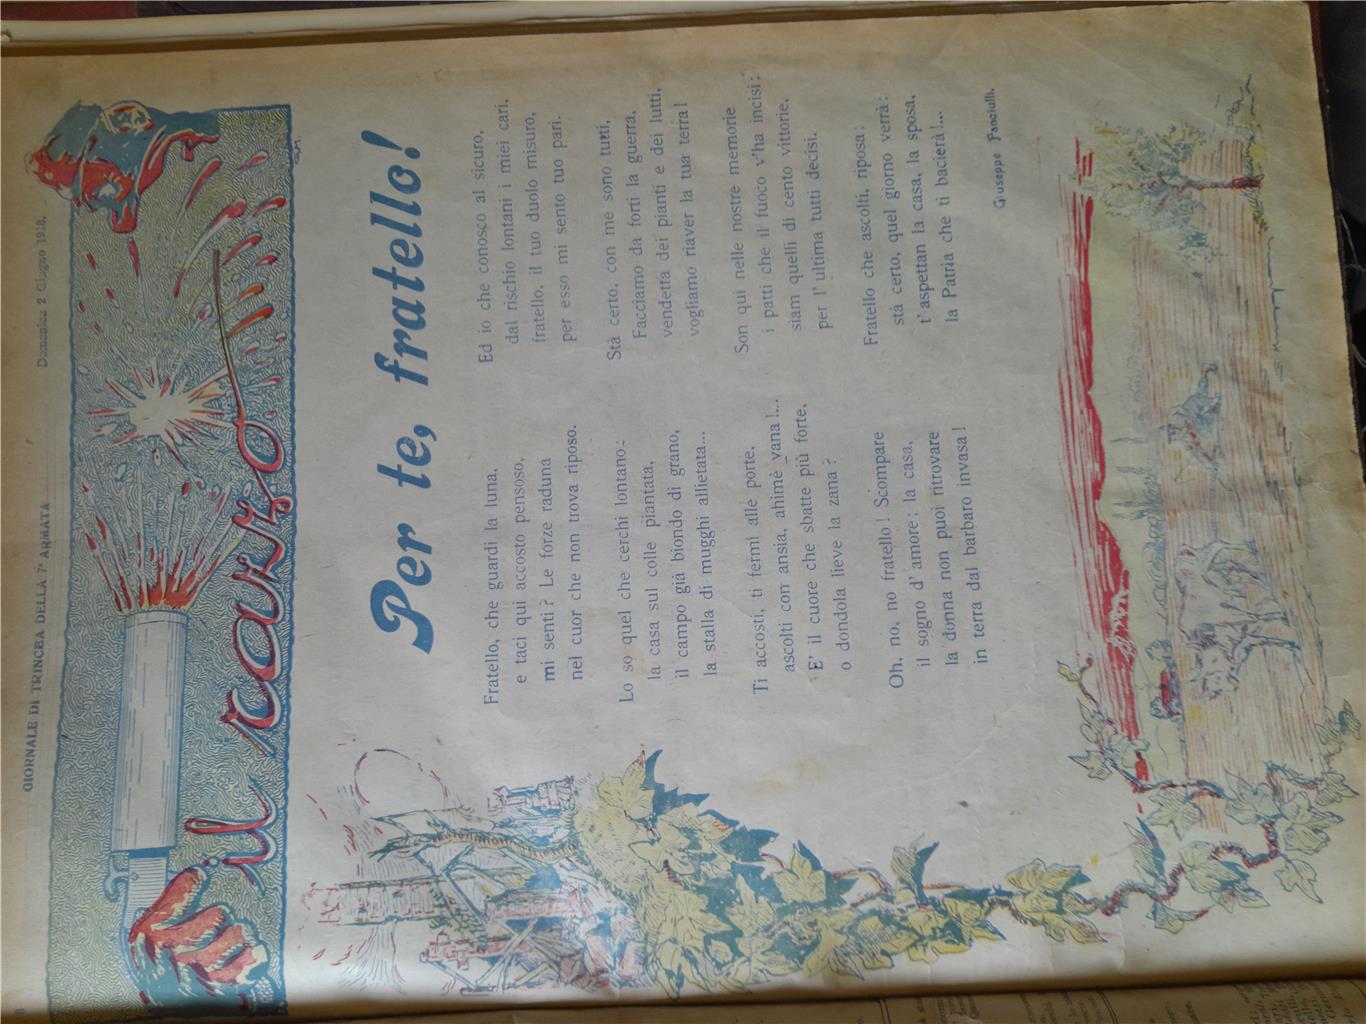 8
GIORNALE DI TRINCEA DELLA 7ª ARMATA
Domenica 2 Giugno 1918.
il razzo
Per te, fratello!
Fratello, che guardi la luna,
e taci qui accosto pensoso,
mi senti? Le forze raduna
nel cuor che non trova riposo.
Lo so quel che cerchi lontano:
la casa sul colle piantata,
il campo già biondo di grano,
la stalla di mugghi allietata...
Ti accosti, ti fermi alle porte,
ascolti con ansia, ahimè vana!...
E' il cuore che sbatte più forte,
o dondola lieve la zana?
Oh, no, no fratello! Scompare
il sogno d'amore: la casa,
la donna non puoi ritrovare
in terra dal barbaro invasa!
Ed io che conosco al sicuro,
dal rischio lontani i miei cari,
fratello, il tuo duolo misuro,
per esso mi sento tuo pari.
Stà certo, con me sono tutti,
Facciamo da forti la guerra,
vendetta dei pianti e dei lutti,
vogliamo riaver la tua terra!
Son qui nelle nostre memorie
i patti che il fuoco v'ha incisi:
siam quelli di cento vittorie,
per l'ultima tutti decisi.
Fratello che ascolti, riposa:
stá certo, quel giorno verrà:
t'aspettan la casa, la sposa,
la Patria che ti bacierà!...
Giuseppe Fanciulli.